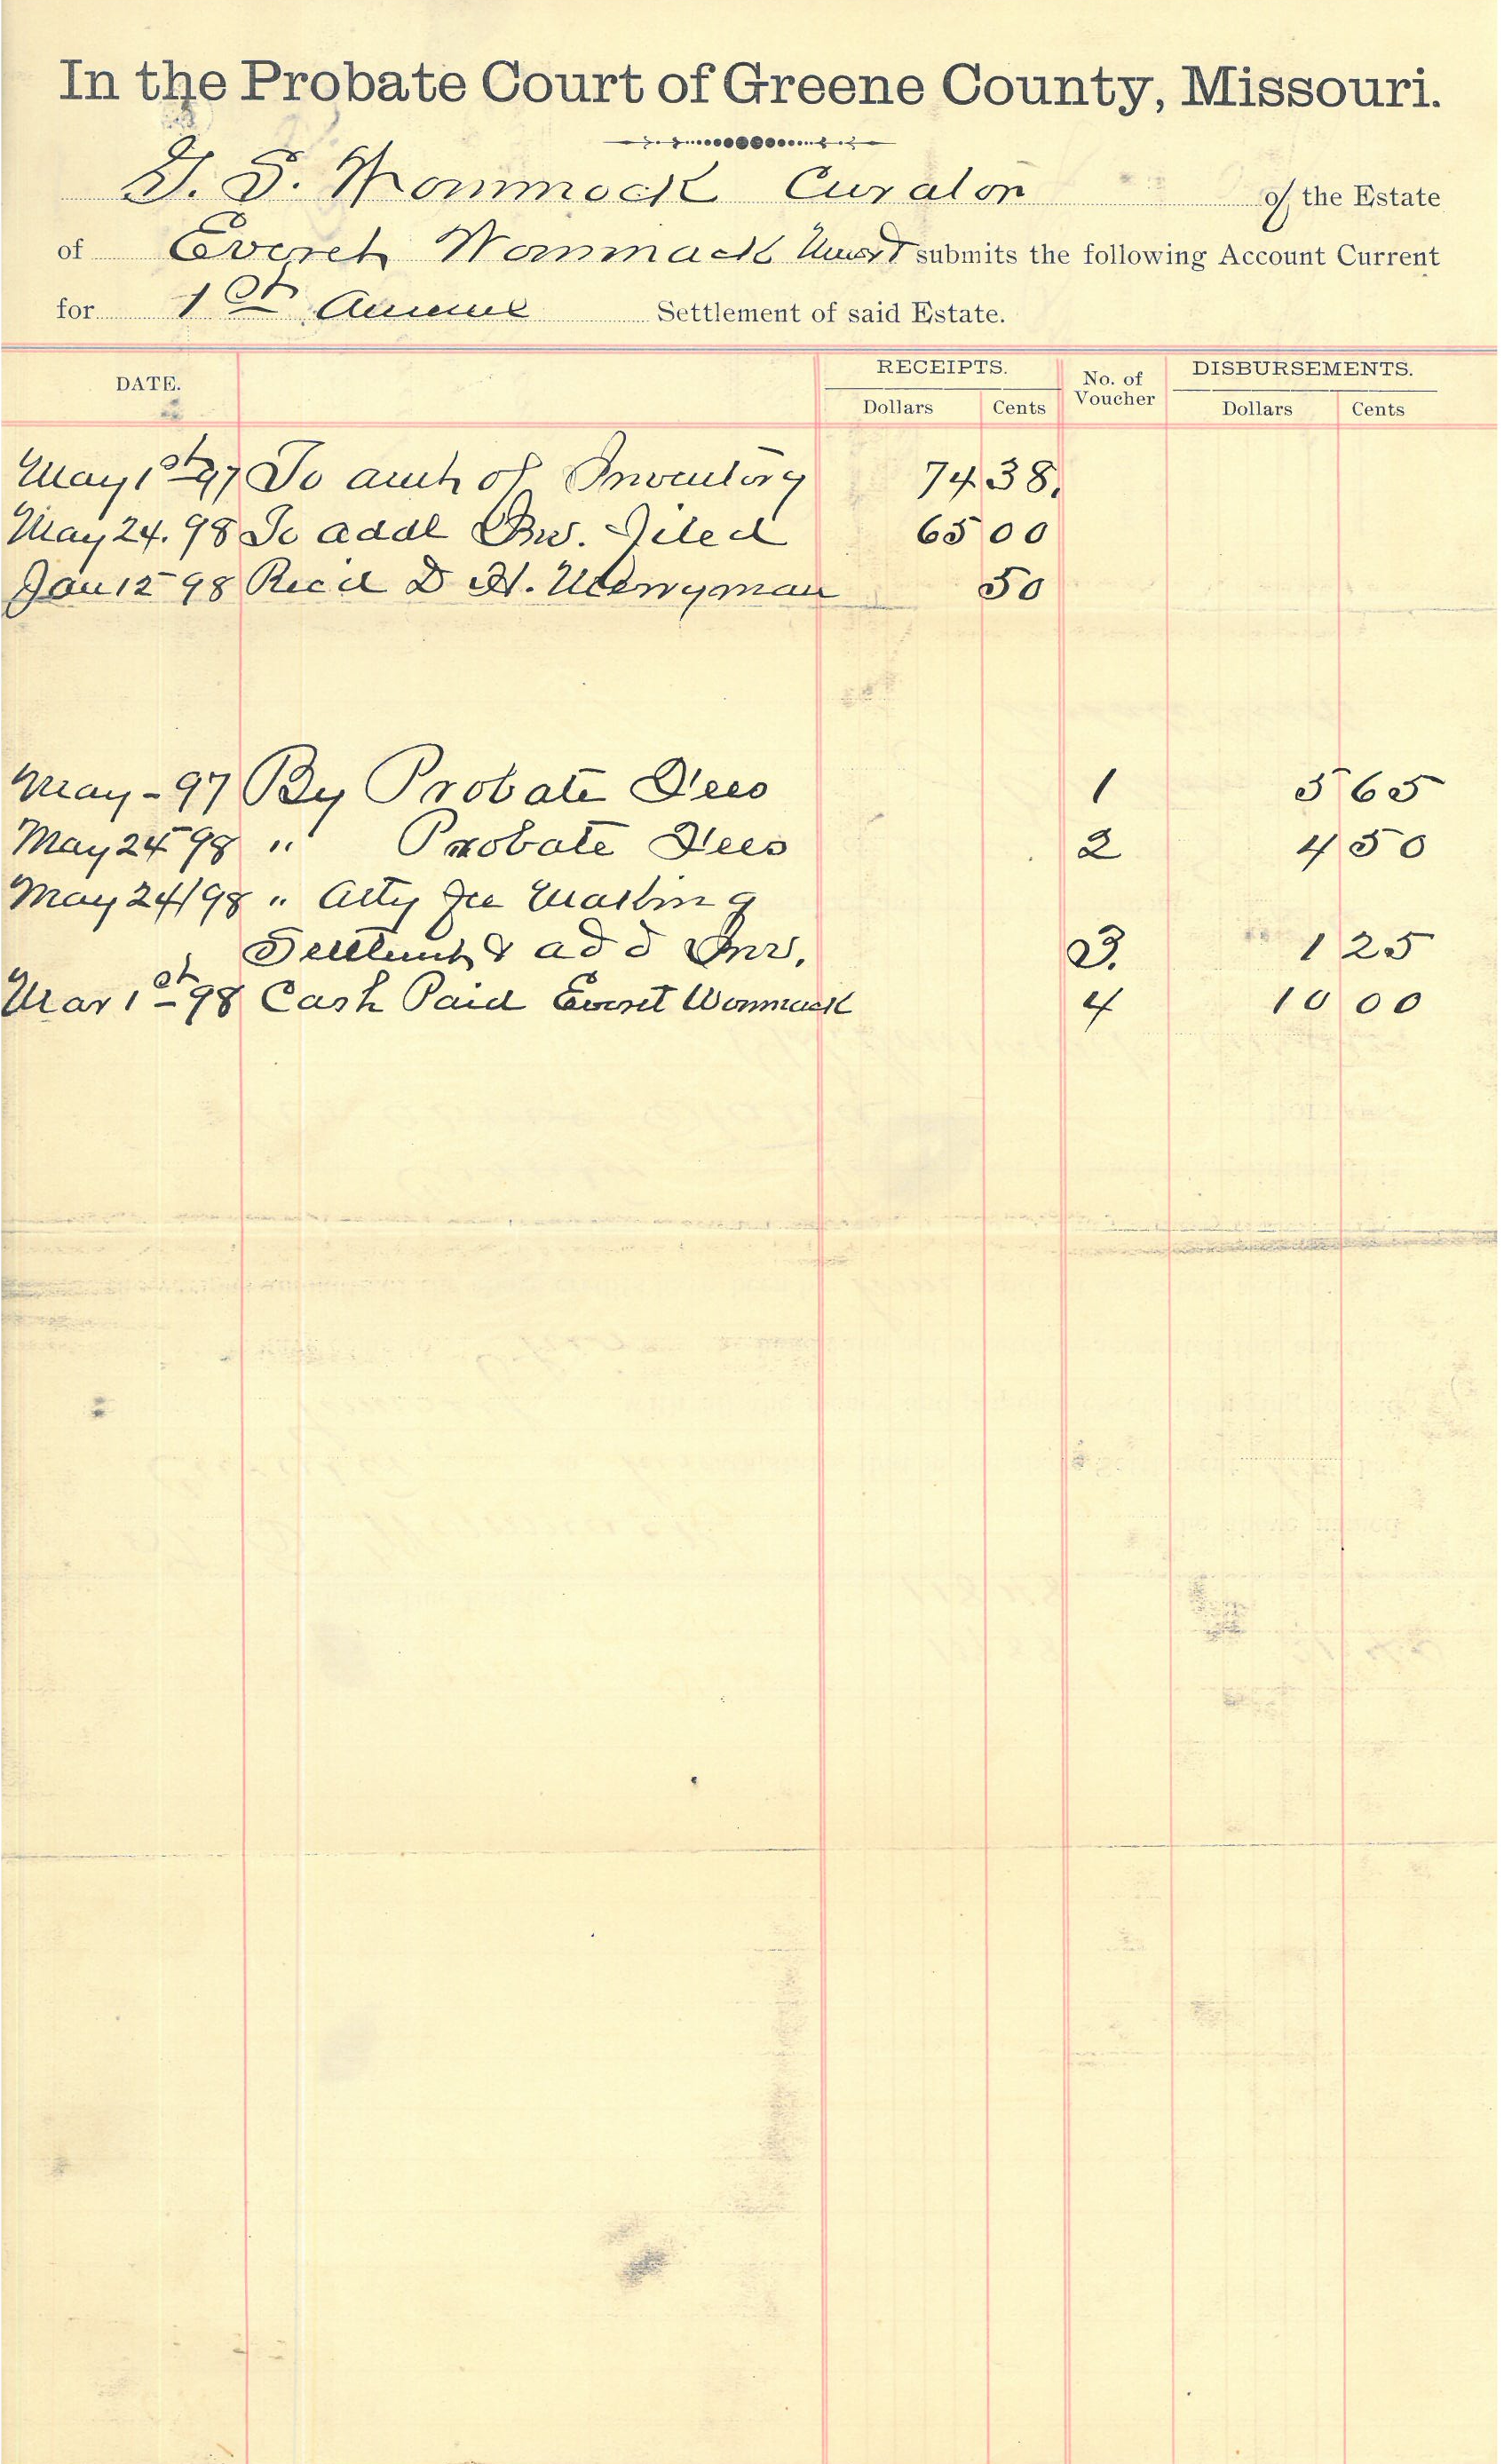 In the Probate Court of Greene County, Missouri.
Wommack Curator of the Estate
of Everett Wommack submits the following Account Current
for 1st Annual Settlement of said Estate.
DATE. RECEIPTS. No. of Voucher DISBURSEMENTS.
Dollars Cents Dollars Cents
May 1st 97 To amt of Inventory 74 38.
May 24. 98 To addl Inv. Filed 65 00
Jan 12 98 Recd D H. Merryman 50
May - 97 By Probate Fees 1 5 65
May 24 98 " Probate Fees 2 4 50
May 24/98 " Atty fee Making
Settlemt & add Inv. 3. 1 25
Mar 1st 98 Cash Paid Everet Wommack 4 10 00